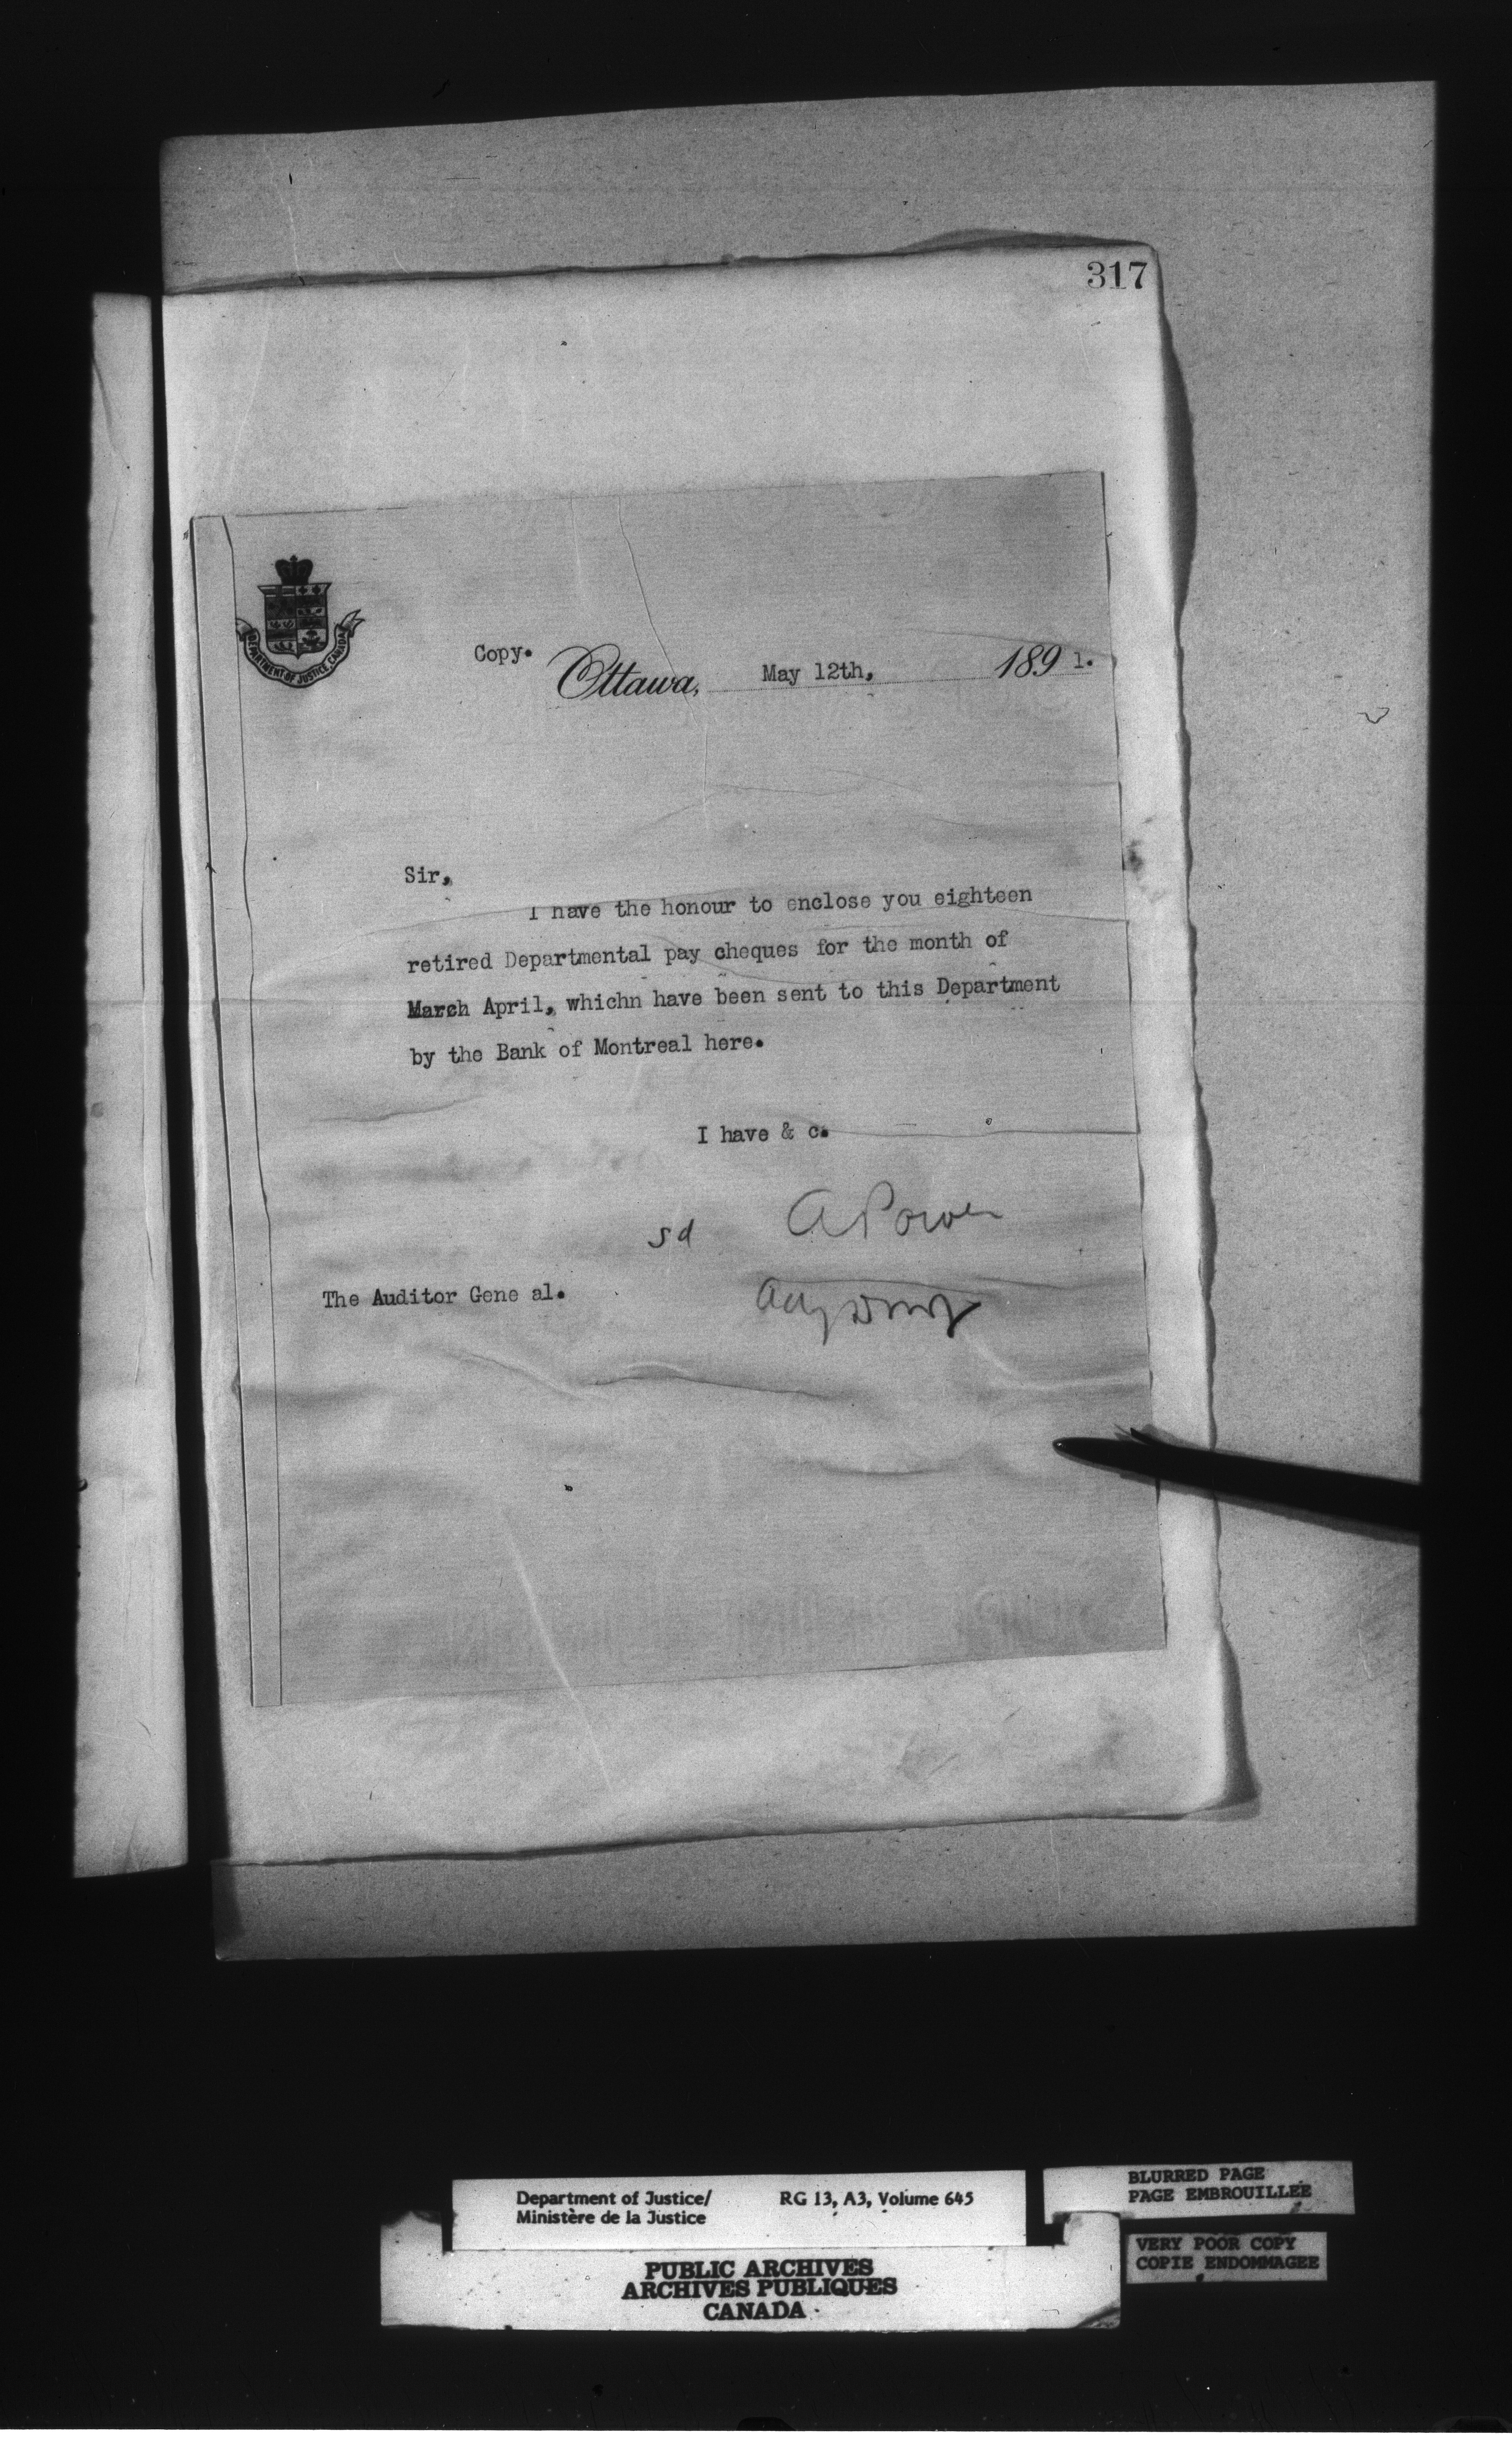 317
DEPARTMENT OF JUSTICE, CANADA
Copy.
Ottawa, May 12th, 1891.
Sir,
I have the honour to enclose you eighteen
retired Departmental pay cheques for the month of
March April, whichn have been sent to this Department
by the Bank of Montreal here.
I have & c.
sd A Power
The Auditor Gene al.
Department of Justice/ RG 13, A3, Volume 645
Ministère de la Justice
PUBLIC ARCHIVES
ARCHIVES PUBLIQUES
CANADA
BLURRED PAGE
PAGE EMBROUILLEE
VERY POOR COPY
COPIE ENDOMMAGEE